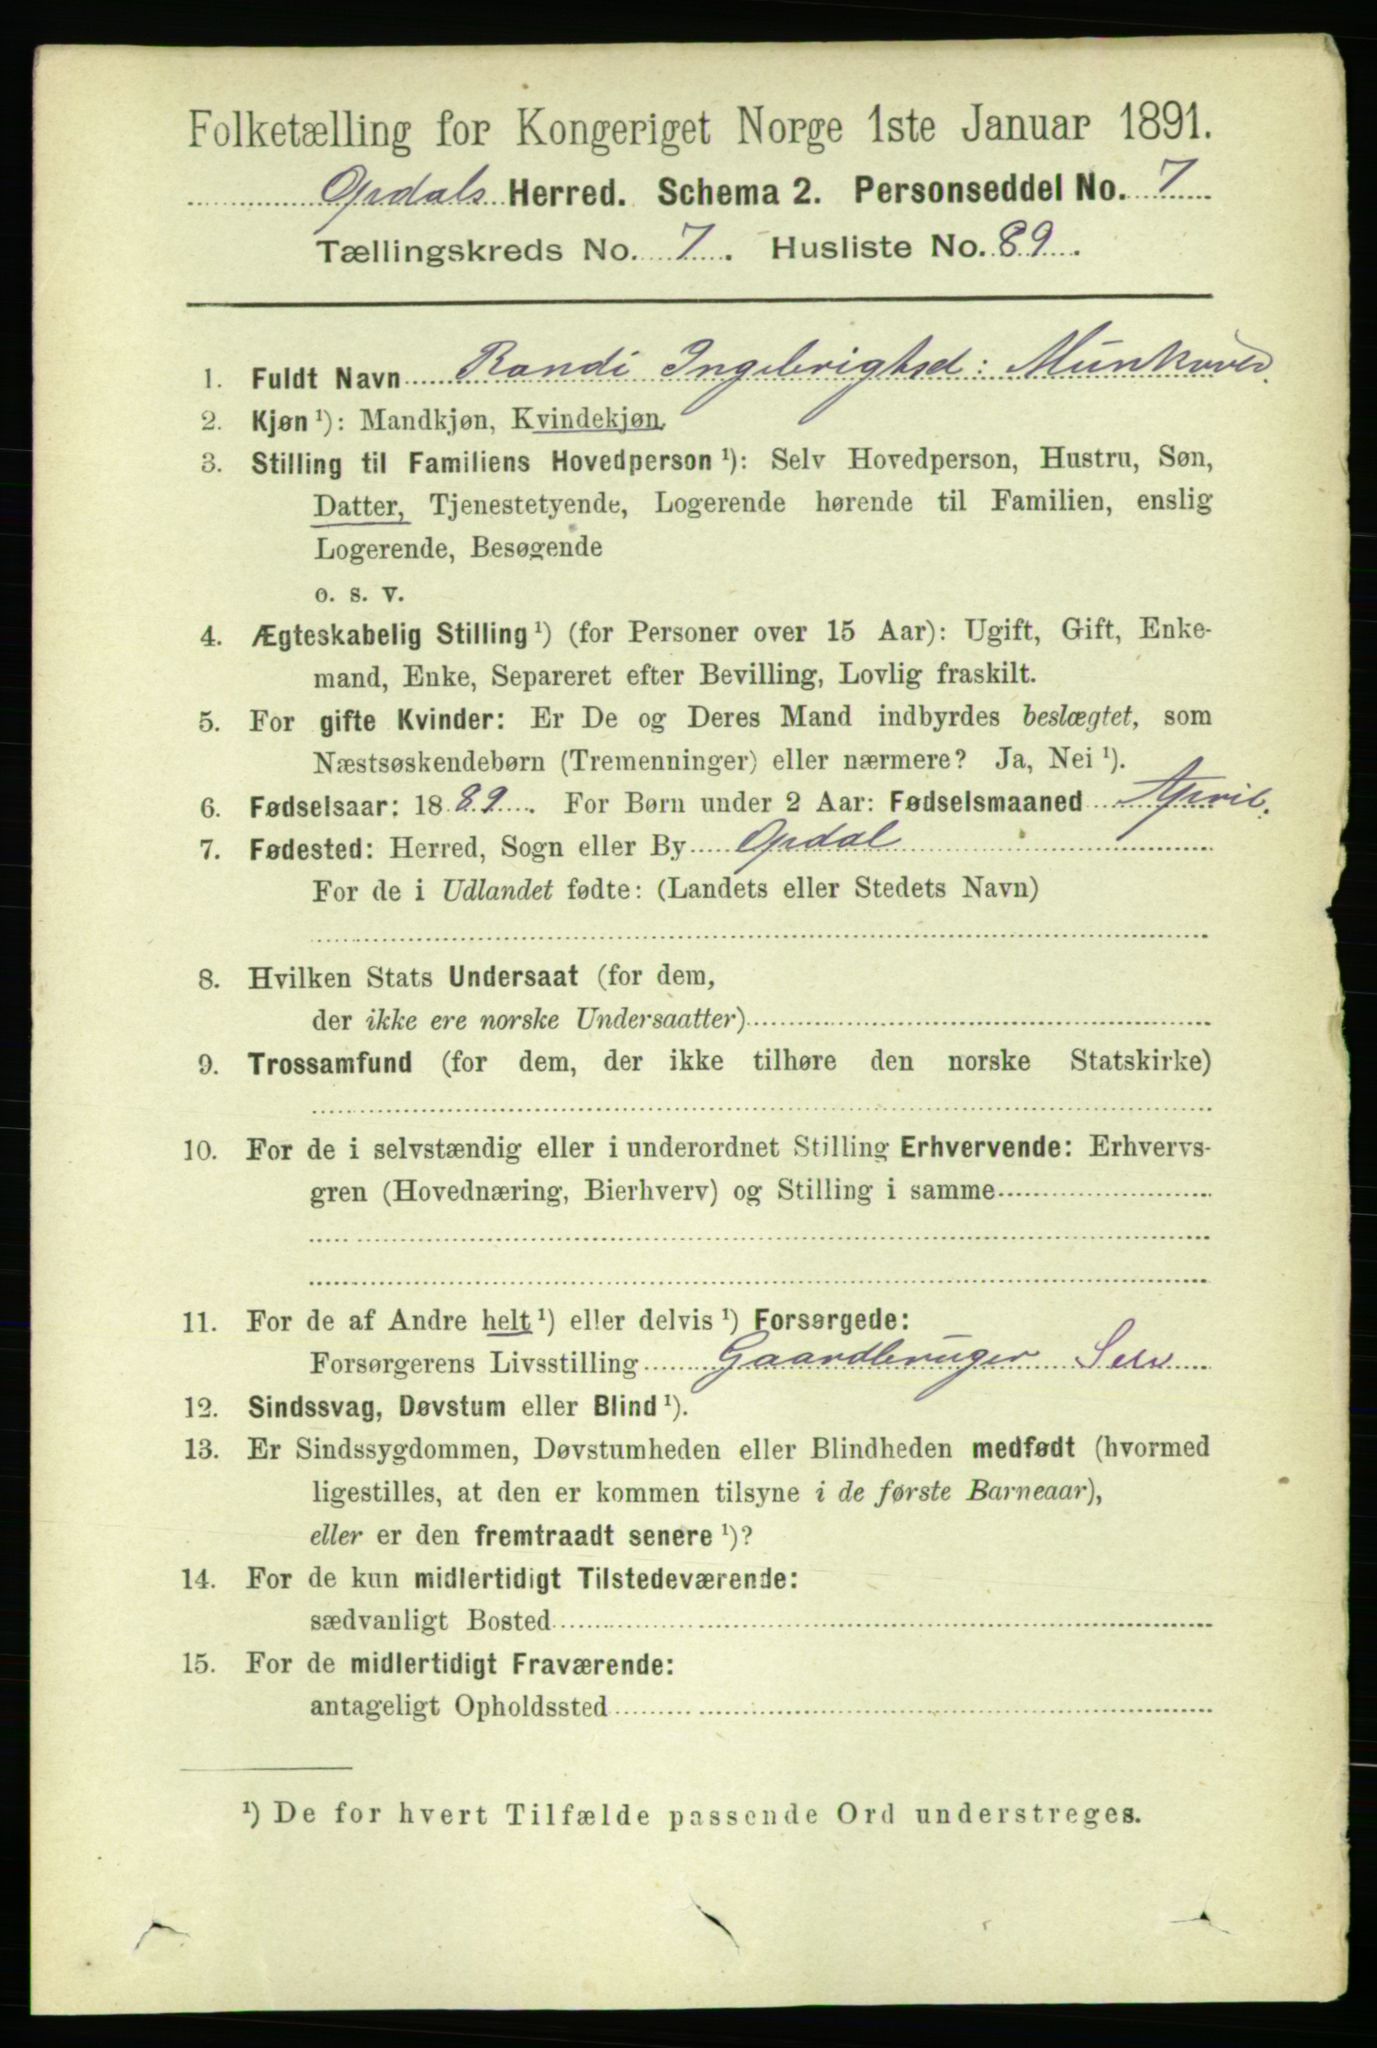 Folketælling for Kongeriget Norge 1ste Januar 1891.
Opdals Herred. Schema 2. Personseddel No. 7
Tællingskreds No. 7. Husliste No. 89.
1. Fuldt Navn Randi Ingebrigtsd: Munkvold
2. Kjøn ¹): Mandkjøn, Kvindekjøn.
3. Stilling til Familiens Hovedperson ¹): Selv Hovedperson, Hustru, Søn,
Datter, Tjenestetyende, Logerende hørende til Familien, enslig
Logerende, Besøgende
o. s. v.
4. Ægteskabelig Stilling ¹) (for Personer over 15 Aar): Ugift, Gift, Enke-
mand, Enke, Separeret efter Bevilling, Lovlig fraskilt.
5. For gifte Kvinder: Er De og Deres Mand indbyrdes beslægtet, som
Næstsøskendebørn (Tremenninger) eller nærmere? Ja, Nei ¹).
6. Fødselsaar: 1889. For Børn under 2 Aar: Fødselsmaaned April.
7. Fødested: Herred, Sogn eller By Opdal
For de i Udlandet fødte: (Landets eller Stedets Navn)
8. Hvilken Stats Undersaat (for dem,
der ikke ere norske Undersaatter)
9. Trossamfund (for dem, der ikke tilhøre den norske Statskirke)
10. For de i selvstændig eller i underordnet Stilling Erhvervende: Erhvervs-
gren (Hovednæring, Bierhverv) og Stilling i samme
11. For de af Andre helt ¹) eller delvis ¹) Forsørgede:
Forsørgerens Livsstilling Gaardbruger Selv
12. Sindssvag, Døvstum eller Blind ¹).
13. Er Sindssygdommen, Døvstumheden eller Blindheden medfødt (hvormed
ligestilles, at den er kommen tilsyne i de første Barneaar),
eller er den fremtraadt senere ¹)?
14. For de kun midlertidigt Tilstedeværende:
sædvanligt Bosted
15. For de midlertidigt Fraværende:
antageligt Opholdssted
¹) De for hvert Tilfælde passende Ord understreges.